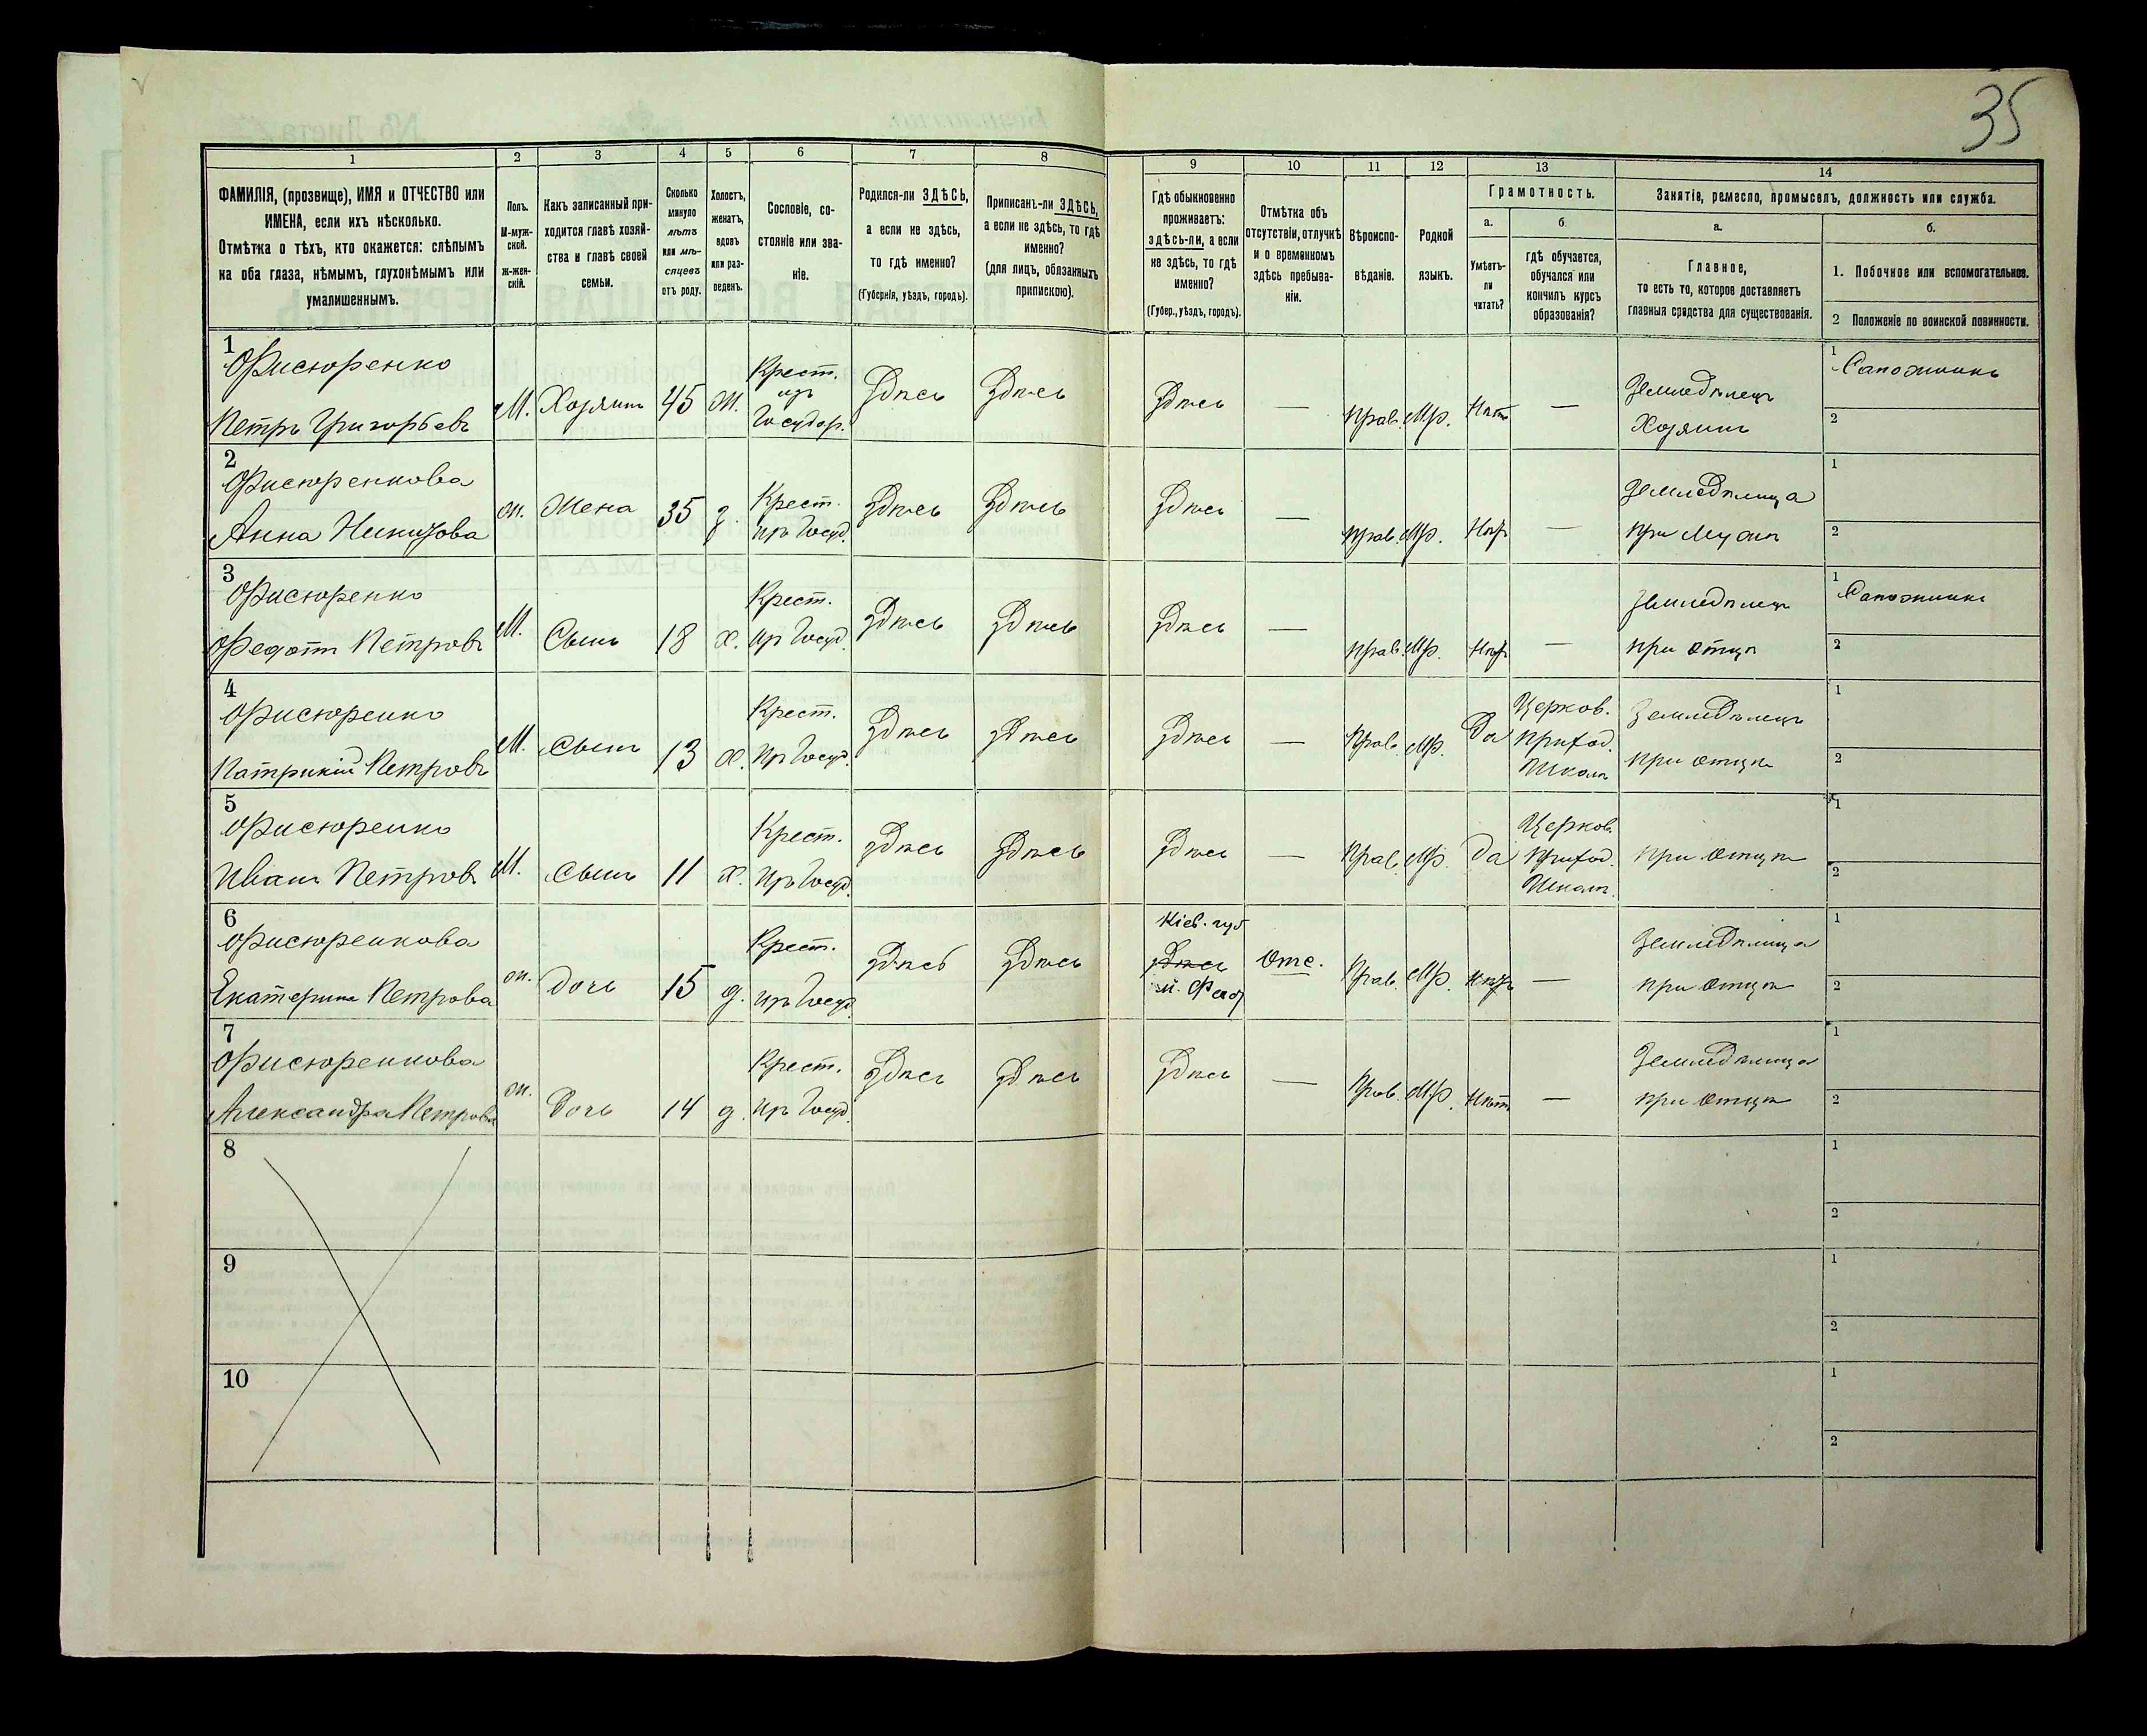 35
1
2
3
4
5
6
7
8
9
10
11
12
13
14
ФАМИЛІЯ, (прозвище), ИМЯ и ОТЧЕСТВО или
ИМЕНА, если ихъ нѣсколько.
Отмѣтка о тѣхъ, кто окажется: слѣпымъ
на оба глаза, нѣмымъ, глухонѣмымъ или
умалишеннымъ.
Полъ.
М-муж-
ской.
ж-жен-
скій.
Какъ записанный при-
ходится главѣ хозяй-
ства и главѣ своей
семьи.
Сколько
минуло
лѣтъ
или мѣ-
сяцевъ
отъ роду.
Холостъ,
женатъ,
вдовъ
или раз-
веденъ.
Сословіе, со-
стояніе или зва-
ніе.
Родился-ли ЗДѢСЬ,
а если не здѣсь,
то гдѣ именно?
(Губернія, уѣздъ, городъ).
Приписанъ-ли ЗДѢСЬ,
а если не здѣсь, то гдѣ
именно?
(для лицъ, обязанныхъ
припискою).
Гдѣ обыкновенно
проживаетъ:
здѣсь-ли, а если
не здѣсь, то гдѣ
именно?
(Губер., уѣздъ, городъ).
Отмѣтка объ
отсутствіи, отлучкѣ
и о временномъ
здѣсь пребыва-
ніи.
Вѣроиспо-
вѣданіе.
Родной
языкъ.
Грамотность.
а.
Умѣетъ-
ли
читать?
б.
гдѣ обучается,
обучался или
кончилъ курсъ
образованія?
Занятіе, ремесло, промыселъ, должность или служба.
а.
Главное,
то есть то, которое доставляетъ
главныя средства для существованія.
б.
1. Побочное или вспомогательное.
2 Положеніе по воинской повинности.
1
Фисюренко
Петръ Григорьевъ
М.
Хозяинъ
45
ж.
Крест.
изъ
Государ.
Здѣсь
Здѣсь
Здѣсь
—
Прав.
Мр.
Нѣтъ
—
Земледѣлецъ
Хозяинъ
1 Сапожникъ
2
2
Фисюренкова
Анна
ж.
Жена
35
з.
Крест.
изъ Госуд.
Здѣсь
Здѣсь
Здѣсь
—
Прав.
Мр.
Нѣтъ
—
Земледѣлица
при мужѣ
1
2
3
Фисюренко
Федотъ Петровъ
М.
Сынъ
18
х.
Крест.
изъ Госуд.
Здѣсь
Здѣсь
Здѣсь
—
Прав.
Мр.
Нѣтъ
—
Земледѣлецъ
при отцѣ
1 Сапожникъ
2
4
Фисюренко
Патрикій Петровъ
М.
Сынъ
13
х.
Крест.
изъ Госуд.
Здѣсь
Здѣсь
Здѣсь
—
Прав.
Мр.
Да
Церков.
Приход.
Школѣ
Земледѣлецъ
при отцѣ
1
2
5
Фисюренко
Иванъ Петровъ
М.
Сынъ
11
х.
Крест.
изъ Госуд.
Здѣсь
Здѣсь
Здѣсь
—
Прав.
Мр.
Да
Церков.
Приход.
Школѣ.
при отцѣ
1
2
6
Фисюренкова
Екатерина Петрова
ж.
Дочь
15
д.
Крест.
изъ Госуд.
Здѣсь
Здѣсь
Кіев. губ
Здѣсь
Отс.
Прав.
Мр.
Нѣтъ
—
Земледѣлица
при отцѣ
1
2
7
Фисюренкова
Александра Петрова
ж.
Дочь
14
д.
Крест.
изъ Госуд.
Здѣсь
Здѣсь
Здѣсь
—
Прав.
Мр.
Нѣтъ
—
Земледѣлица
при отцѣ
1
2
8
1
2
9
1
2
10
1
2